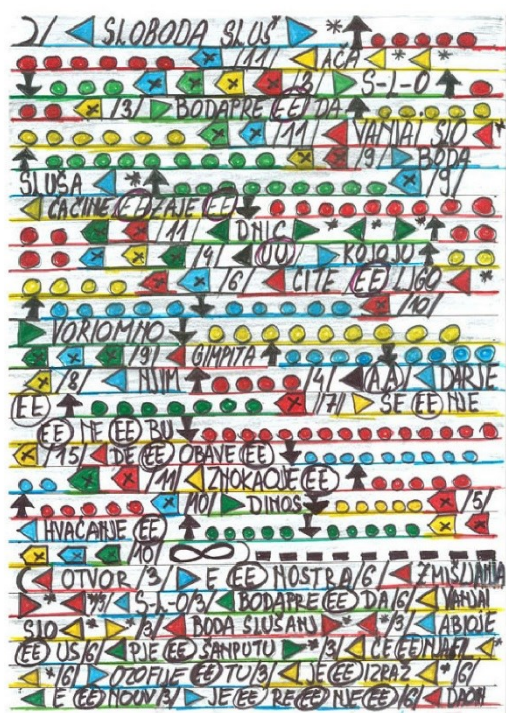 2/ SLOBODA SLUŠ *
/11/ AČA * *
/2/ S-L-O
/3/ BODAPRE EE DA
/11/ VANJAI SLO *
/9/ BODA
SLUŠA * /9/
ČAČINE EE ZAJE EE
/11/ DNIC * *
/4/ UU KOJOJO
/6/ ČITE EE LIGO *
/10/
VORIOMNO
/9/ GIMPITA
/8/ NUM /4/ AA DARJE
EE /7/ SE EE NJE
EE NE EE BU
/15/ DE EE OBAVE EE
/11/ ZNOKAOJE EE
/10/ DINOS /5/
HVAČANJE EE
/10/
OTVOR /3/ E EE NOSTRA /6/ ZMIŠLJANJA
* */3/ S-L-O/3/ BODAPRE EE DA/6/ VANJAI
SLO * */3/ BODA SLUŠANJ */3/ ABJOJE
EE US/6/ PJE EE ŠANPUTU */3/ ČE EE NJAEZ *
*/6/ OZOFIJE EE TU/3/ JE EE IZRAZ */6/
E EE NOUN/3/ JE EE RE EE NJE EE /6/ DAOH